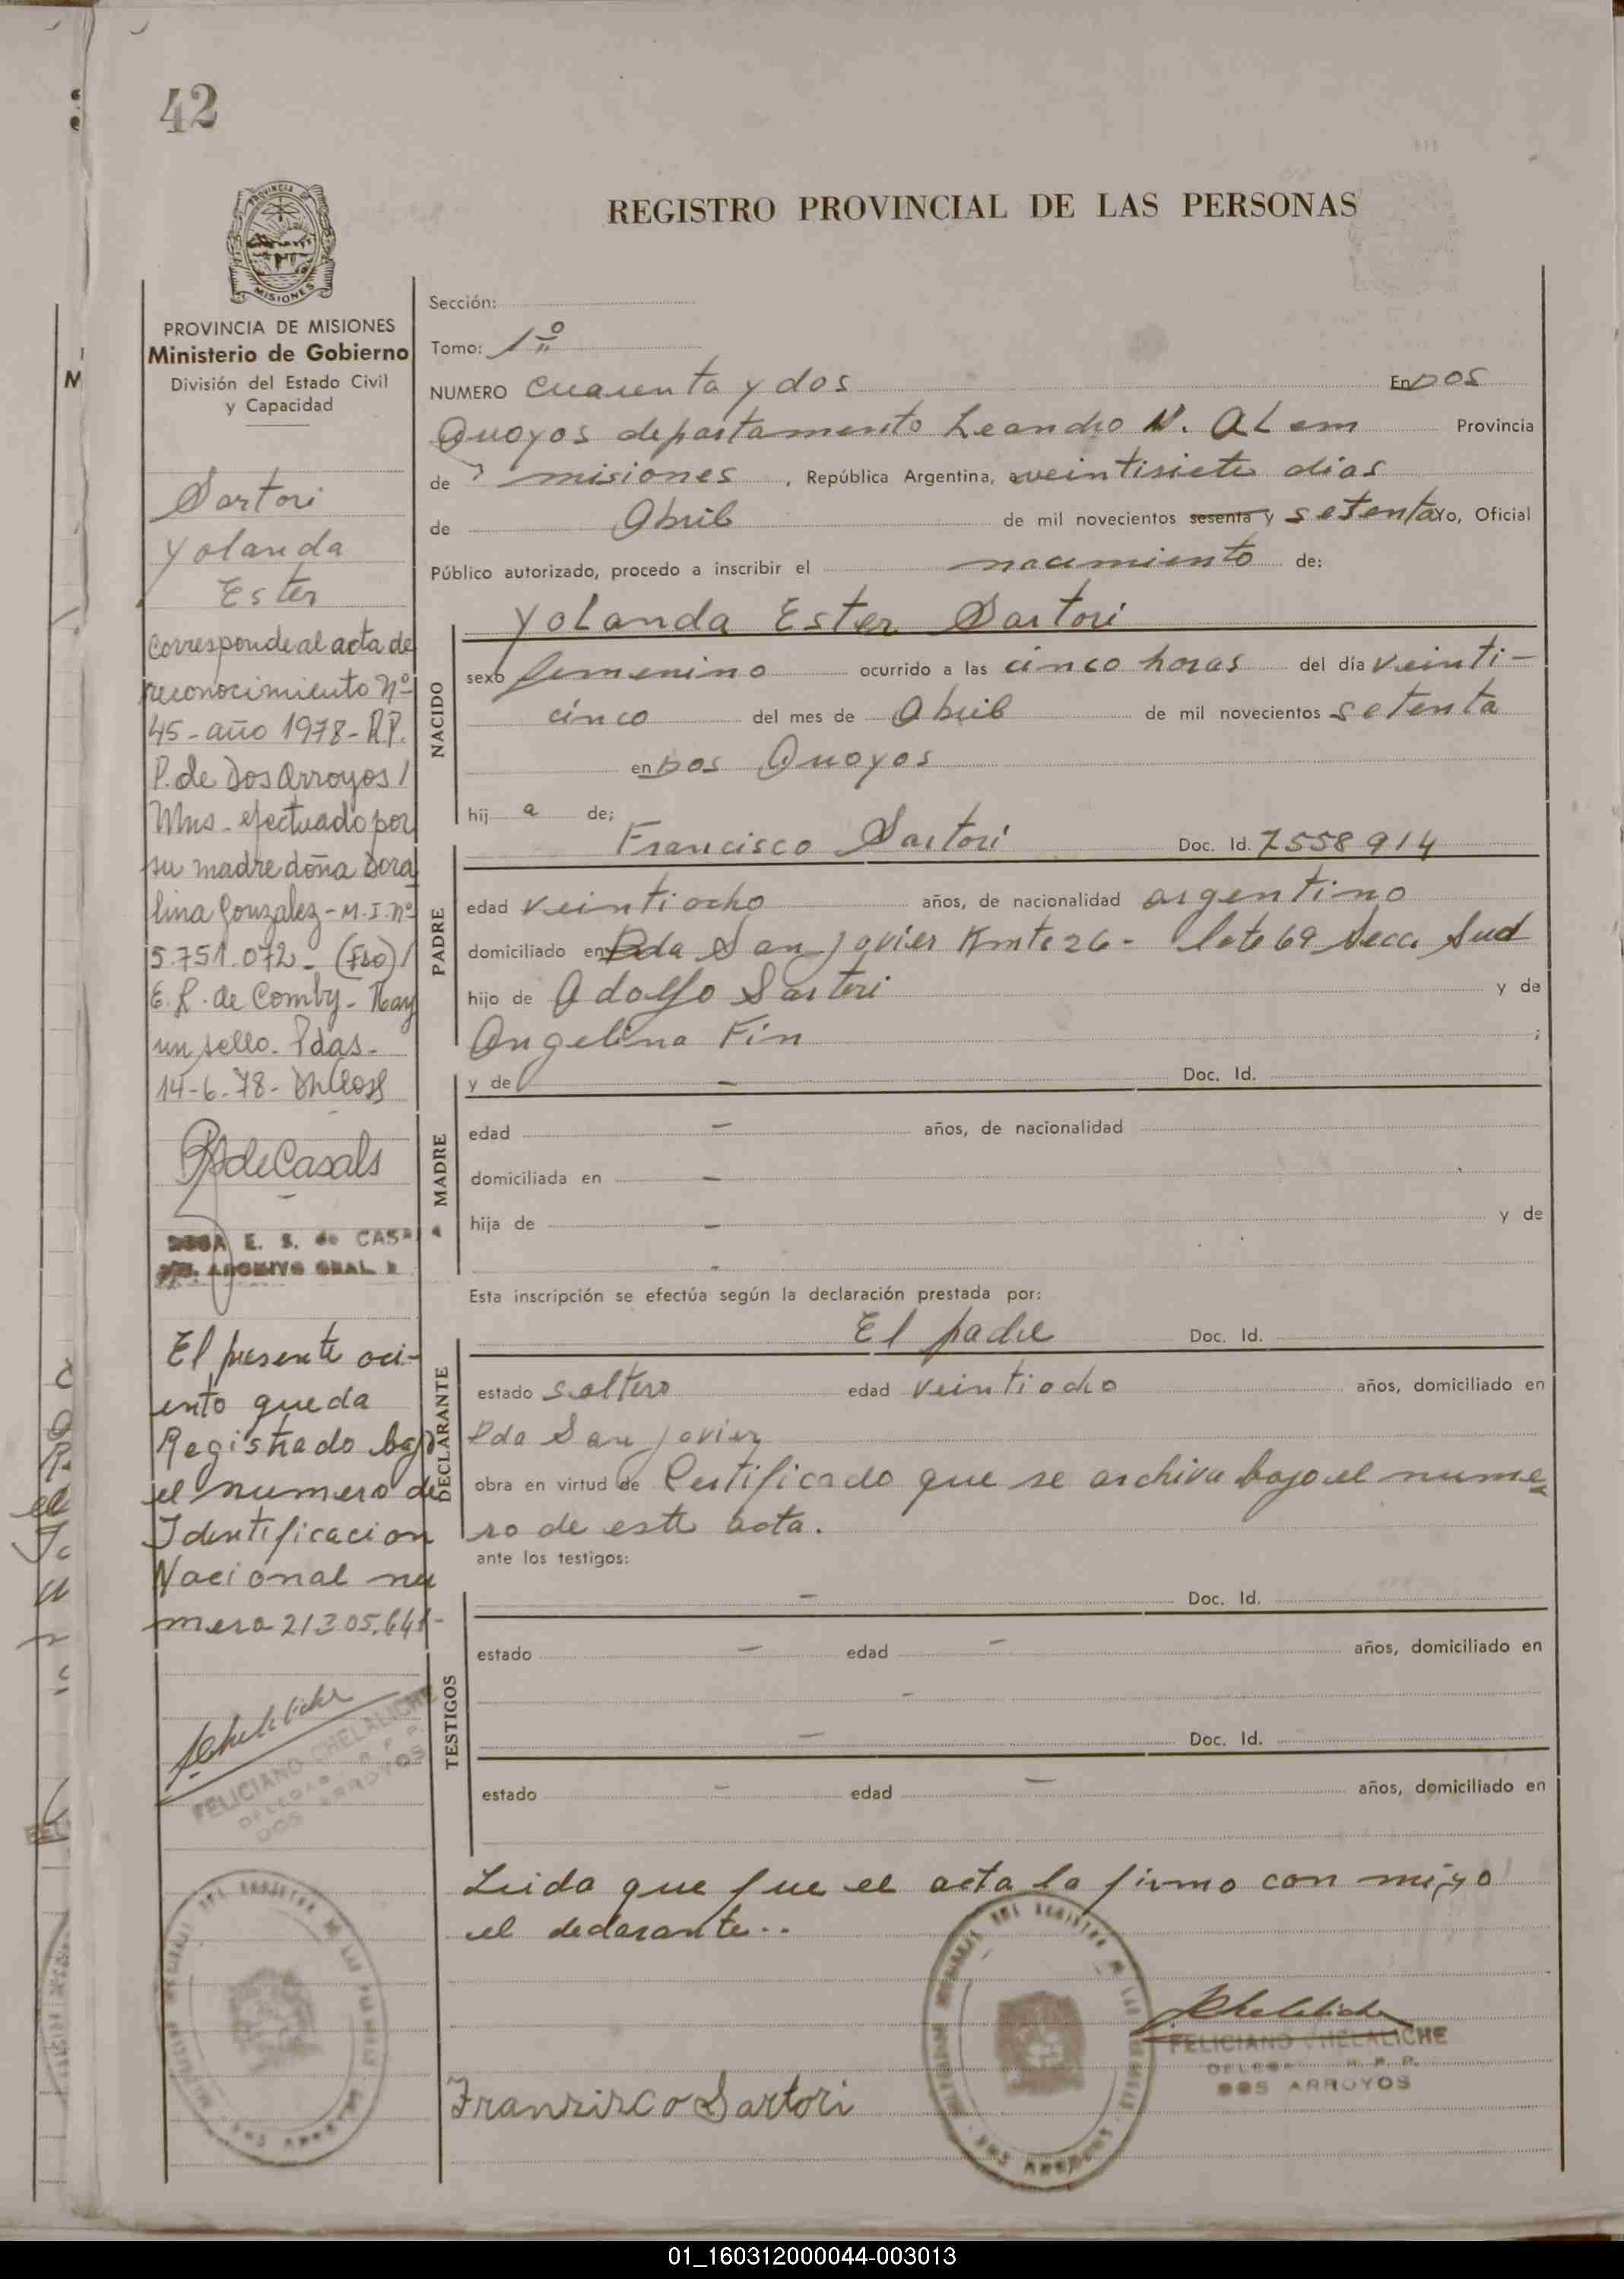 42
PROVINCIA DE
MISIONES
REGISTRO PROVINCIAL DE LAS PERSONAS
PROVINCIA DE MISIONES
Ministerio de Gobierno
División del Estado Civil
y Capacidad
Sartori
Yolanda
Ester
Corresponde al acta de
reconocimiento nº
45-año 1978-R.P.
P. de Dos Arroyos/
Mns-efectuado por
su madre doña Dora
lina Gonzalez-M.I. nº
5.751.072-(Fdo)/
E. R. de Comby-Hay
un sello. Pdas-
14-6-78-
RAdeCasals
E. S. de CASA
ARCHIVO GRAL
El presente oci-
ento queda
Registrado bajo
el numero de
Identificacion
Nacional nu
mero 21305.641-
FELICIANO CHELALICHE
DELEGADO R. P. P.
DOS ARROYOS
Sección:
Tomo: 1º
NUMERO cuarenta y dos En Dos
Arroyos departamento Leandro N. ALem Provincia
de misiones, República Argentina, a veintisiete dias
de Abril de mil novecientos sesenta y setenta Yo, Oficial
Público autorizado, procedo a inscribir el nacimiento de:
NACIDO
Yolanda Ester Sartori
sexo femenino ocurrido a las cinco horas del día veinti-
cinco del mes de Abril de mil novecientos setenta
en Dos Arroyos
hij a de;
PADRE
Francisco Sartori Doc. Id. 7558914
edad veintiocho años, de nacionalidad argentino
domiciliado en Pda San Javier Kmte 26- lote 69 Secc. Sud
hijo de Adolfo Sartori y de
Angelina Fin ;
MADRE
y de - Doc. Id.
edad - años, de nacionalidad
domiciliada en -
hija de - y de
-
Esta inscripción se efectúa según la declaración prestada por:
DECLARANTE
El padre Doc. Id.
estado soltero edad veintiocho años, domiciliado en
Pda San Javier
obra en virtud de Certificado que se archiva bajo el nume
ro de este acta.
ante los testigos:
TESTIGOS
- Doc. Id.
estado - edad - años, domiciliado en
-
- Doc. Id.
estado - edad - años, domiciliado en
Leida que fue el acta la firmo con migo
el declarante..
Franzirco Sartori
FELICIANO CHELALICHE
DELEGADO R. P. P.
DOS ARROYOS
01_160312000044-003013